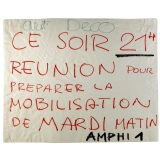 DECO
CE SOIR 21H
REUNION POUR
PREPARER LA
MOBILISATION
DE MARDI MATIN
AMPHI 1